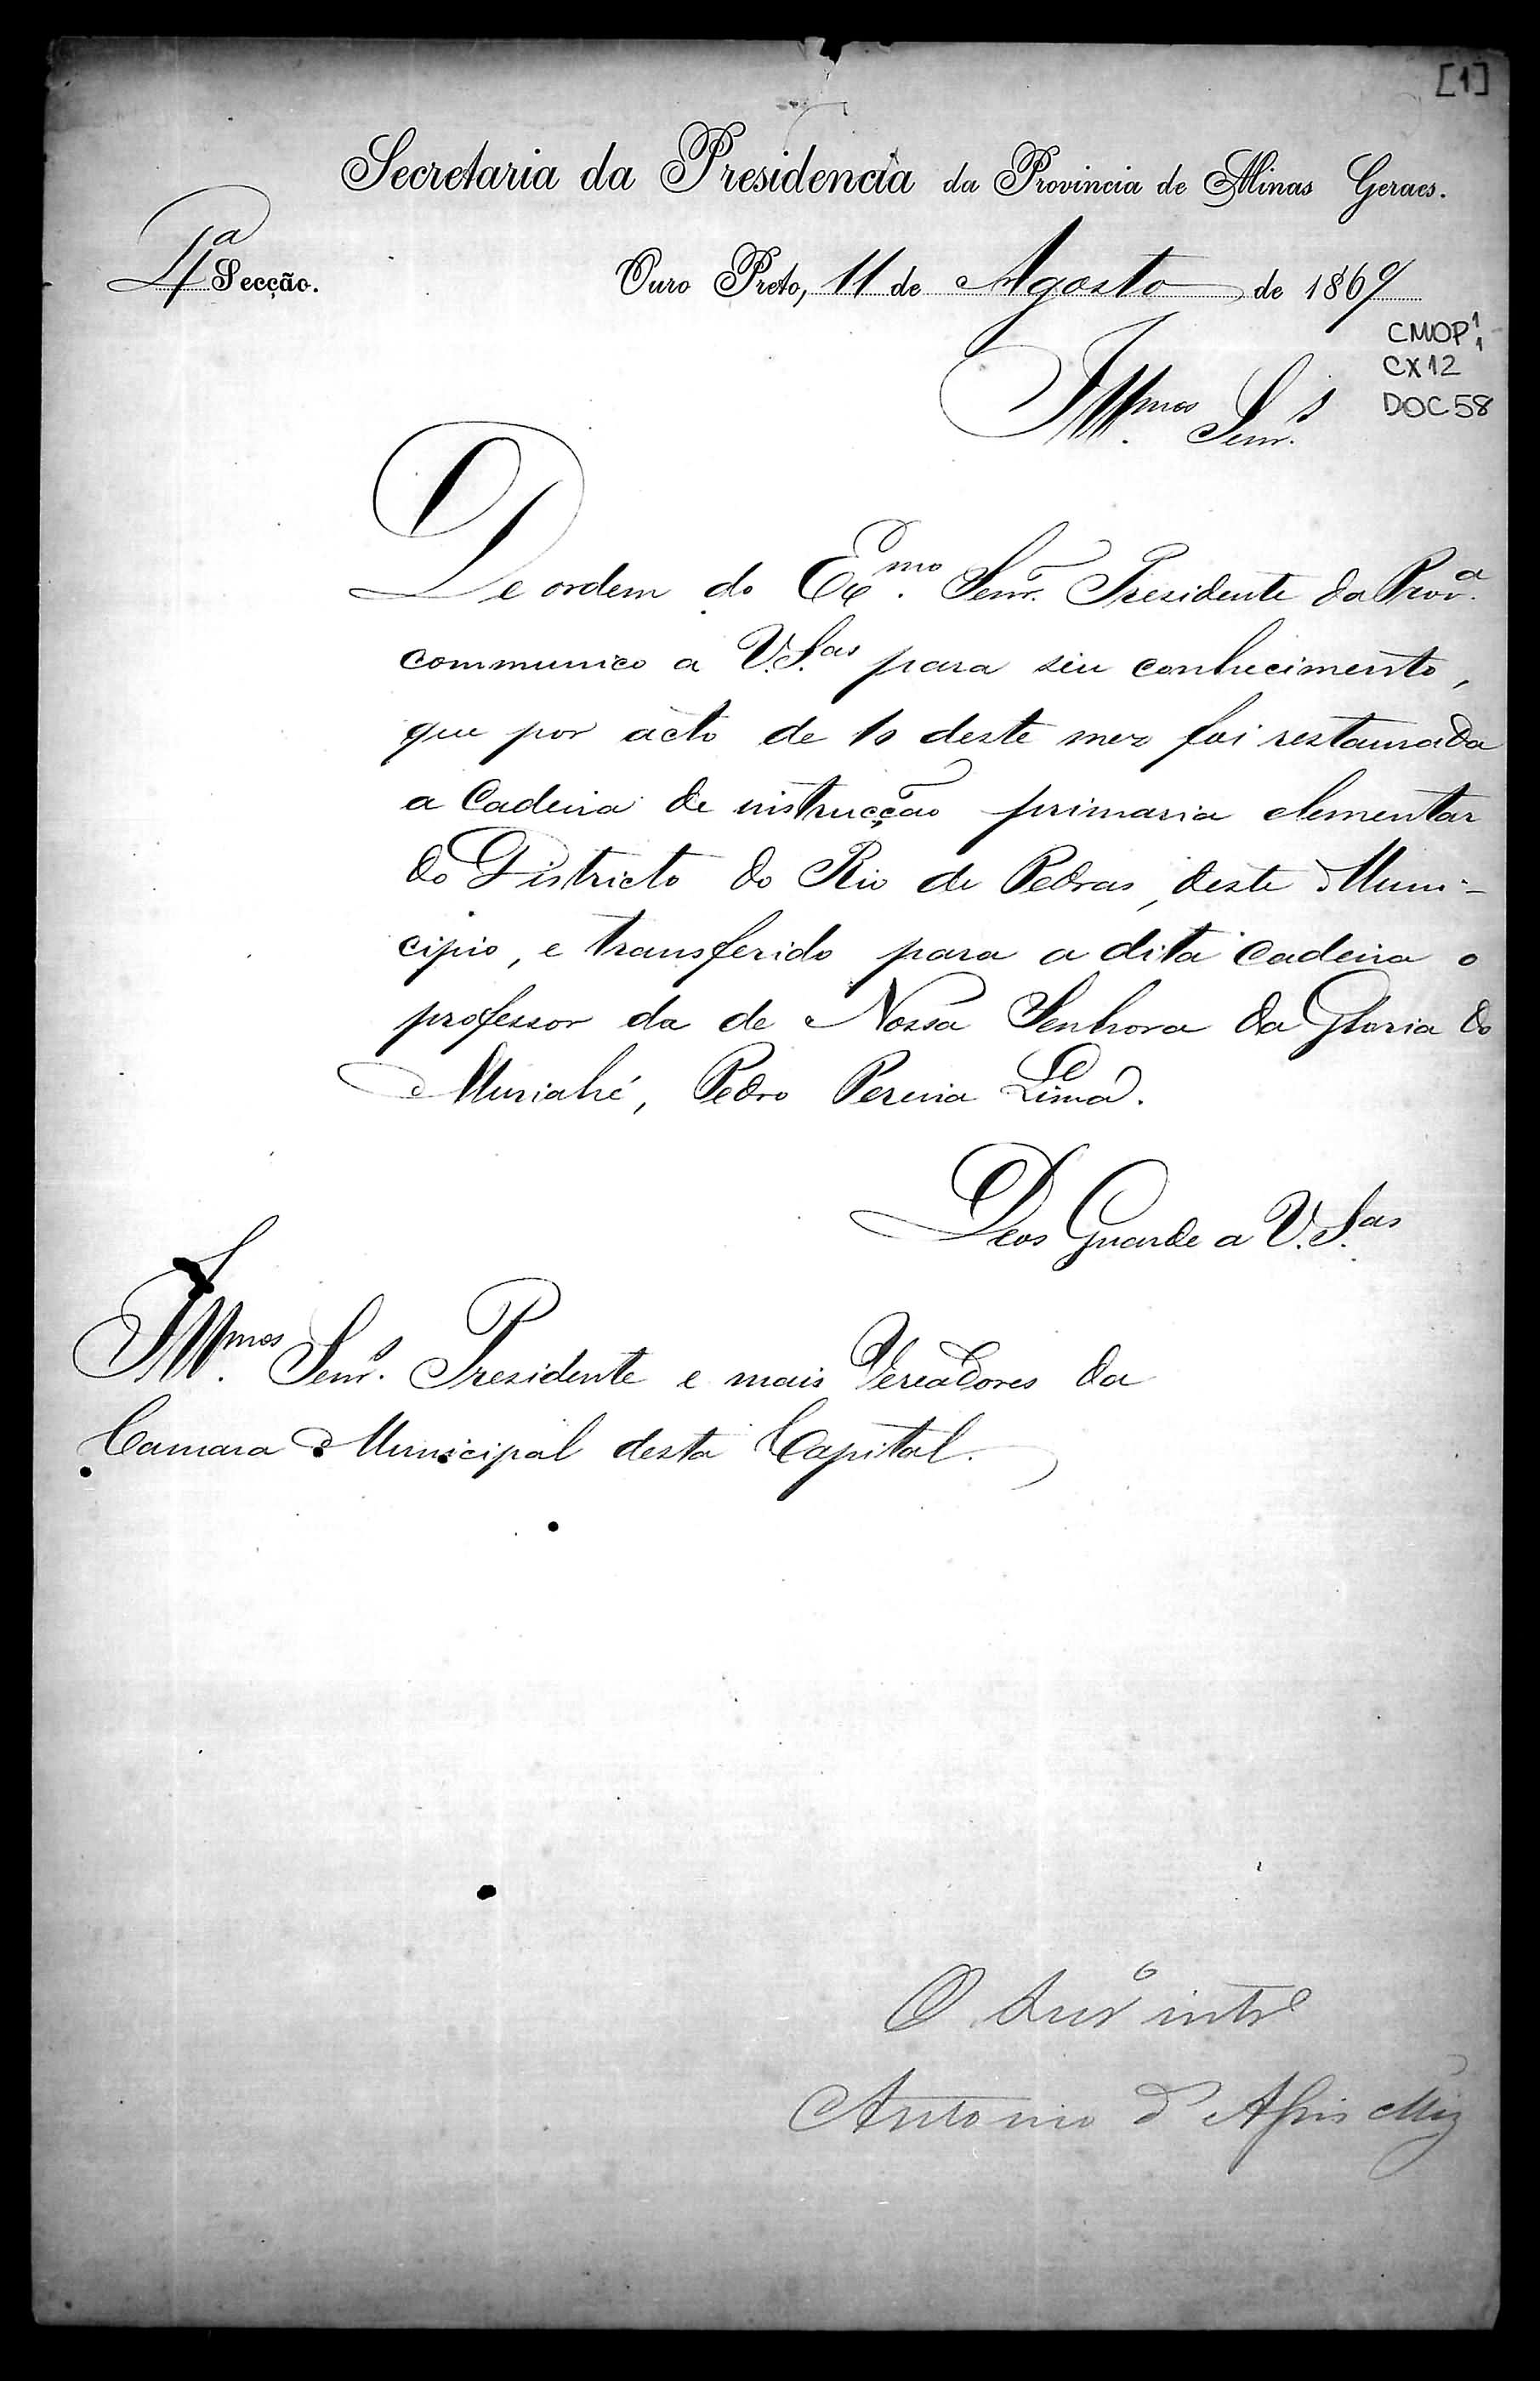 [1]
Secretaria da Presidencia da Provincia de Minas Geraes.
4ª Secção.
Ouro Preto, 11 de Agosto de 1869
CMOP 1/1
CX12
DOC 58
Illmos. Senrs.
De ordem do Exmo. Senr. Presidente da Prova.
communico a V.Sas para seu conhecimento,
que por acto de 10 deste mez foi restaurada
a Cadeira de instrucção primaria elementar
do Districto do Rio de Pedras, deste Muni-
cipio, e transferido para a dita cadeira o
professor da de Nossa Senhora da Gloria do
Muriahé, Pedro Pereira Lima.
Deos Guarde a V. Sas
Illmos. Senrs. Presidente e mais Vereadores da
Camara Municipal desta Capital.
O
Antonio d'Assis